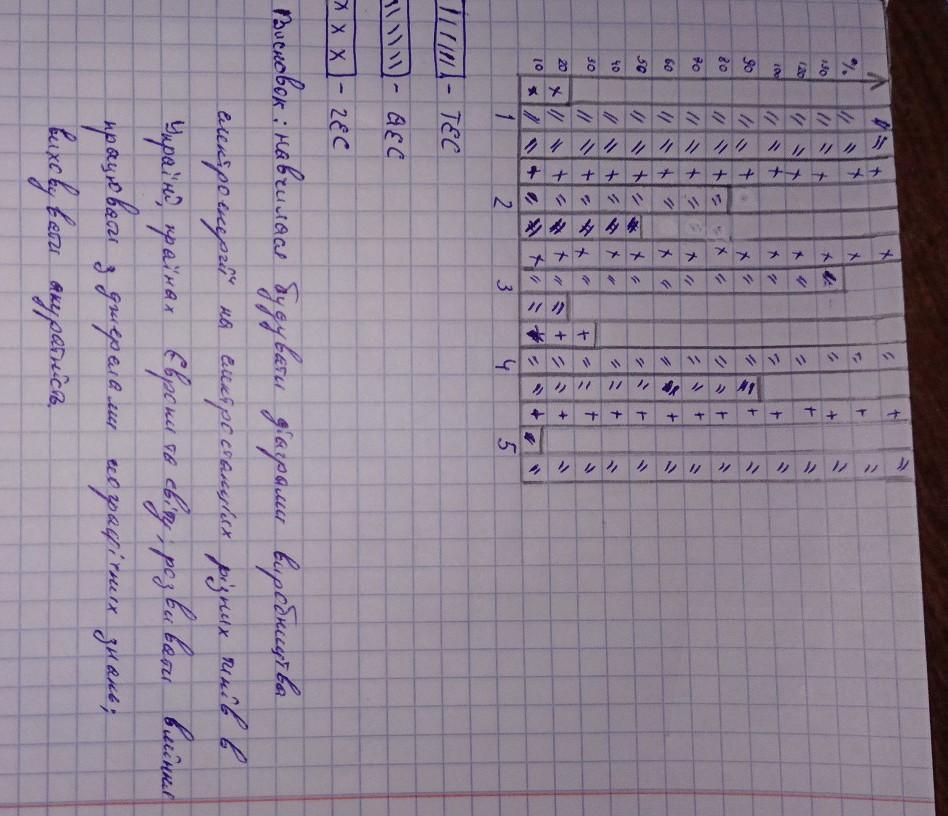 %
150
120
100
90
80
70
60
50
40
30
20
10
1 2 3 4 5
- ТЕС
- АЕС
- ГЕС
Висновок: навчилася будувати діаграми виробництва
електроенергії на електростанціях різних типів в
Україні, країнах Європи та світу; розвивати вміння
працювати з джерелами географічних знань;
виховувати акуратність.